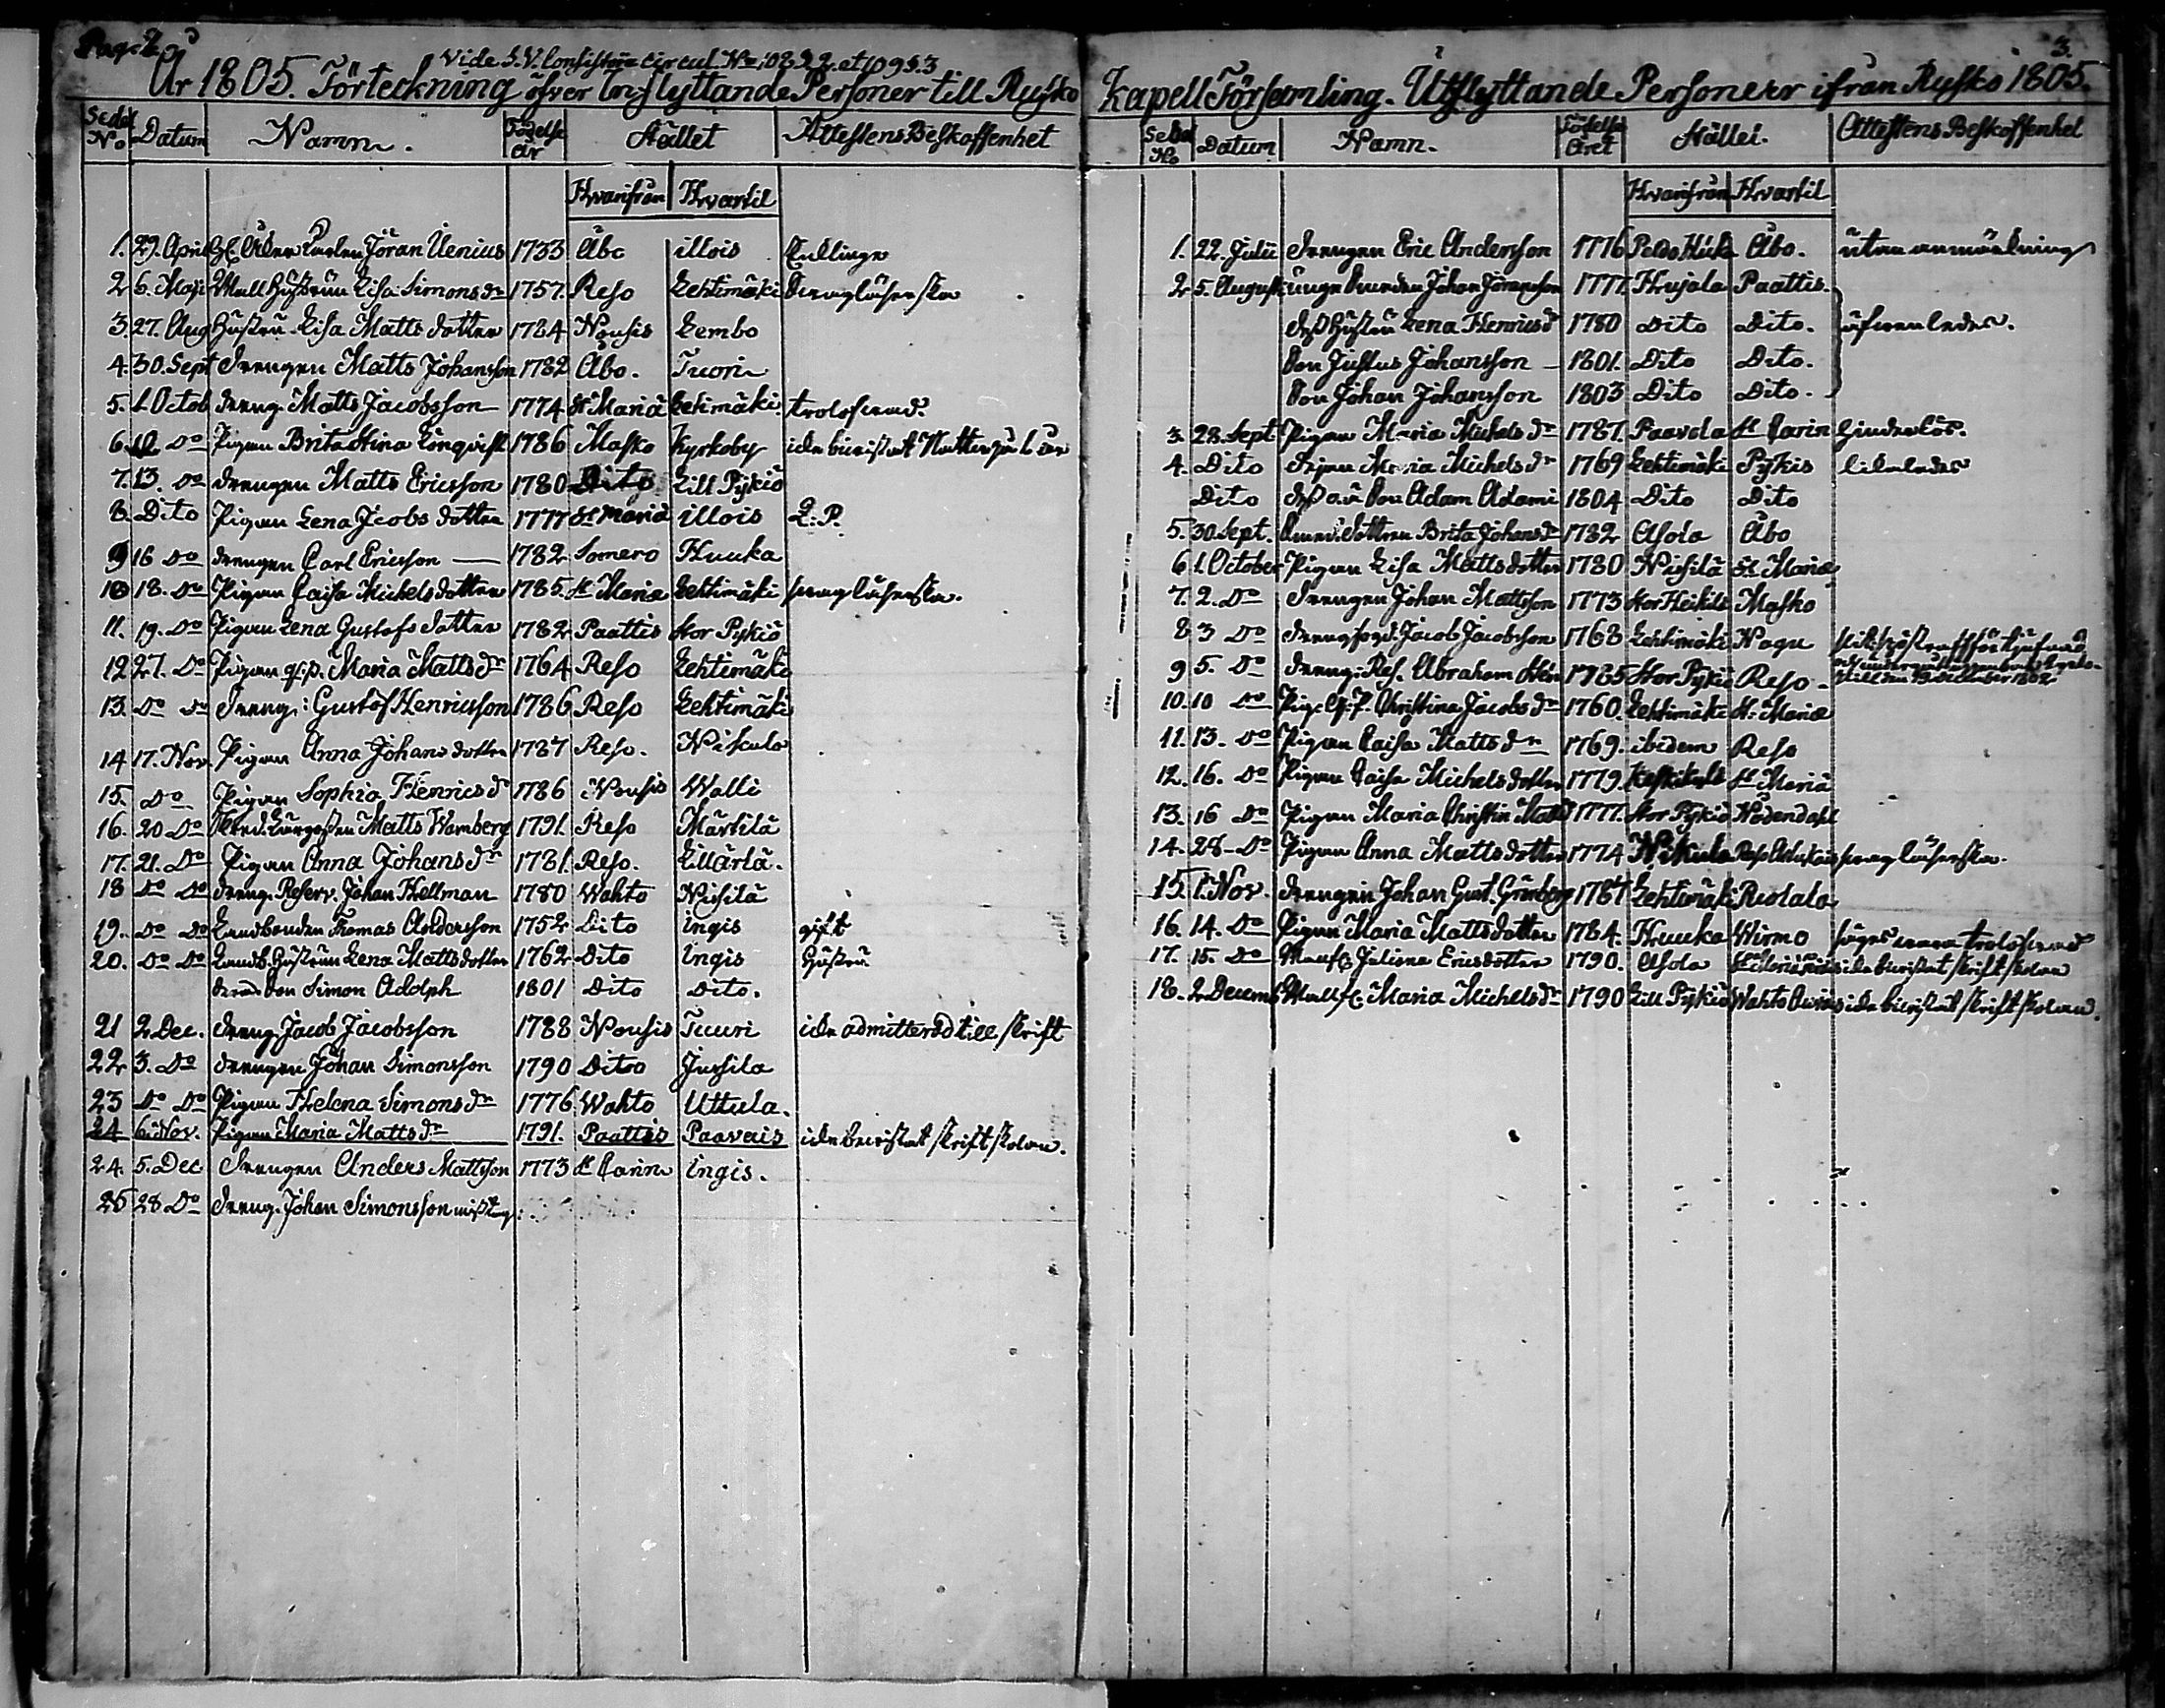 Pag. 2
Vide S. V. Consistorii Circul. No 108 §. 22. et 109 §. 3
År 1805. Förteckning öfver Inflyttande Personer till Rusko
Sedel No Datum Namn. Födelse år Stället Attestens Beskaffenhet
Hvarifrån Hvartil
1. 29. April Jöran Uenius 1733 Åbo illois
2 6. Maji Hustrun Lisa Simons dr 1757. Reso Lehtimäki svag läserska
3. 27. Aug Hustru Lisa Matts dotter 1784 Nousis Lembo
4. 30. Sept Drengen Matts Johansson 1782 Åbo. Tuori
5. 1. Octob Dreng. Matts Jacobsson 1774 St Mariä Lehtimäki trolofvad.
6. Do Pigan Brita Stina Lönqvist 1786 Masko Kyrkoby icke bevistat Nattvarden
7. 13. Do Drengen Matts Ericsson 1780 Dito Lill Pykiö
8. Dito Pigan Lena Jacobs dotter 1777 St Mariä illois Q. P.
9 16 Do Drengen Carl Ericsson 1782 Somero Huuka
10 18. Do Pigan Caisa Michels dotter 1785. St Mariæ Lehtimäki svag läserska.
11. 19. Do Pigan Lena Gustafs dotter 1782 Paattis Stor Pykiö
12 27. Do Pigan q. p. Maria Matts dr 1764 Reso Lehtimäki
13. Do Do Dreng: Gustof Henricsson 1786 Reso Lehtimäki
14 17. Nov Pigan Anna Johans dotter 1787 Reso. Niskala
15. Do Pigan Sophia Henrics dr 1786 Nousis Walli
16. 20 Do Matts Wamberg 1791. Reso Märtilä
17. 21. Do Pigan Anna Johans dr 1781. Reso. Lillärlä.
18 Do Do Dreng. Reserv. Johan Hellman 1780 Wahto Nissilä
19. Do Do Landbonden Thomas Andersson 1752 Dito ingis gift
20. Do Do Landb. Hustrun Lena Matts dotter 1762 Dito Ingis Hustru
deras Son Simon Adolph 1801 Dito Dito.
21 2 Dec. Dreng. Jacob Jacobsson 1788 Nousis Tuuri icke admitterad till skrift
22 3. Do Drengen Johan Simonsson 1790 Dito Jussila
23 Do Do Pigan Helena Simons dr 1776 Wahto Uttula.
24 6. Nov. Pigan Maria Matts dr 1791. Paattis Paavais icke bevistat skriftskolan.
24. 5. Dec Drengen Anders Mattsson 1773 St Carin Ingis.
25 28 Do Dreng. Johan Simonsson
3.
Kapell Församling. Utflyttande Personerr ifrån Rusko 1805.
Sedel No Datum Namn. Födelse Året Stället. Attestens Beskaffenhet
Hvarifrån Hvartil
1. 22. Julii Drengen Eric Andersson 1776 Åbo. utan anmärkning
2 5. August unge bonden Johan Jöransson 1777. Hujala Paattis.
dess Hustru Lena Henricsd 1780 Dito Dito. äfvenledes.
Son Justus Johansson 1801. Dito Dito.
Son Johan Johansson 1803 Dito Dito.
3. 28. Sept Pigan Maria Michels dr 1787. Paavola St Carin hinderlös.
4. Dito Pigan Maria Michels dr 1769 Lehtimäki Pykis likaledes
Dito dess o. ä Son Adam Adami 1804 Dito Dito
5. 30. Sept. dottren Brita Johans dr 1782 Asola Åbo
6 1. October Pigan Lisa Matts dotter 1780 Nissilä St Mariæ
7. 2. Do Drengen Johan Mattsson 1773 Stor Heikilä Masko
8 3 Do Jacob Jacobsson 1768 Lehtimäki Nagu
9 5. Do Dreng. Res. Abraham 1785 Stor Pykiö Reso
10. 10 Do Pig. q. p. Christina Jacobs dr 1760. Lehtimäki St. Mariæ
11. 13. Do Pigan Caisa Matts dr 1769. ibidem Reso
12. 16. Do Pigan Caisa Michels dotter 1779. St Mariä
13. 16 Do Pigan Maria Christin Matsd 1777. Stor Pykiö Nådendahl
14. 28 Do Pigan Anna Matts dotter 1774 svag läserska.
15 1. Nov. Drengen Johan Gust. Grönberg 1787 Lehtimäki Ruolala
16. 14. Do Pigan Maria Matts dotter 1784. Huuka Wirmo säges vara trolofvad
17. 15. Do Juliana Ericsdotter 1790. Asola icke bevistat skriftskolan
18. 2 Decemb Maria Michels dr 1790 Lill Pykiö Wahto icke bevistat skriftskolan.